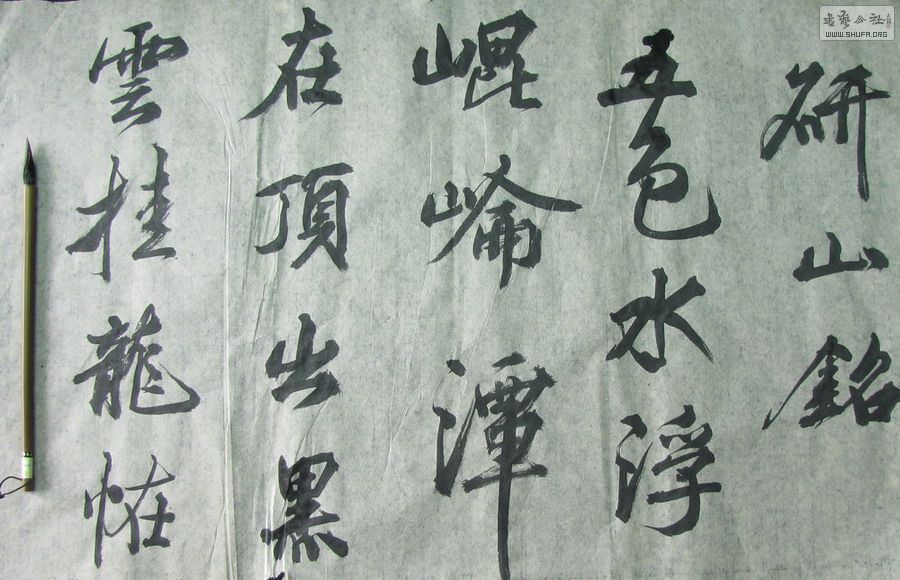 研山銘
五色水浮
崐崘潭
在頂出黑
雲挂龍恠
書藝公社
WWW.SHUFA.ORG